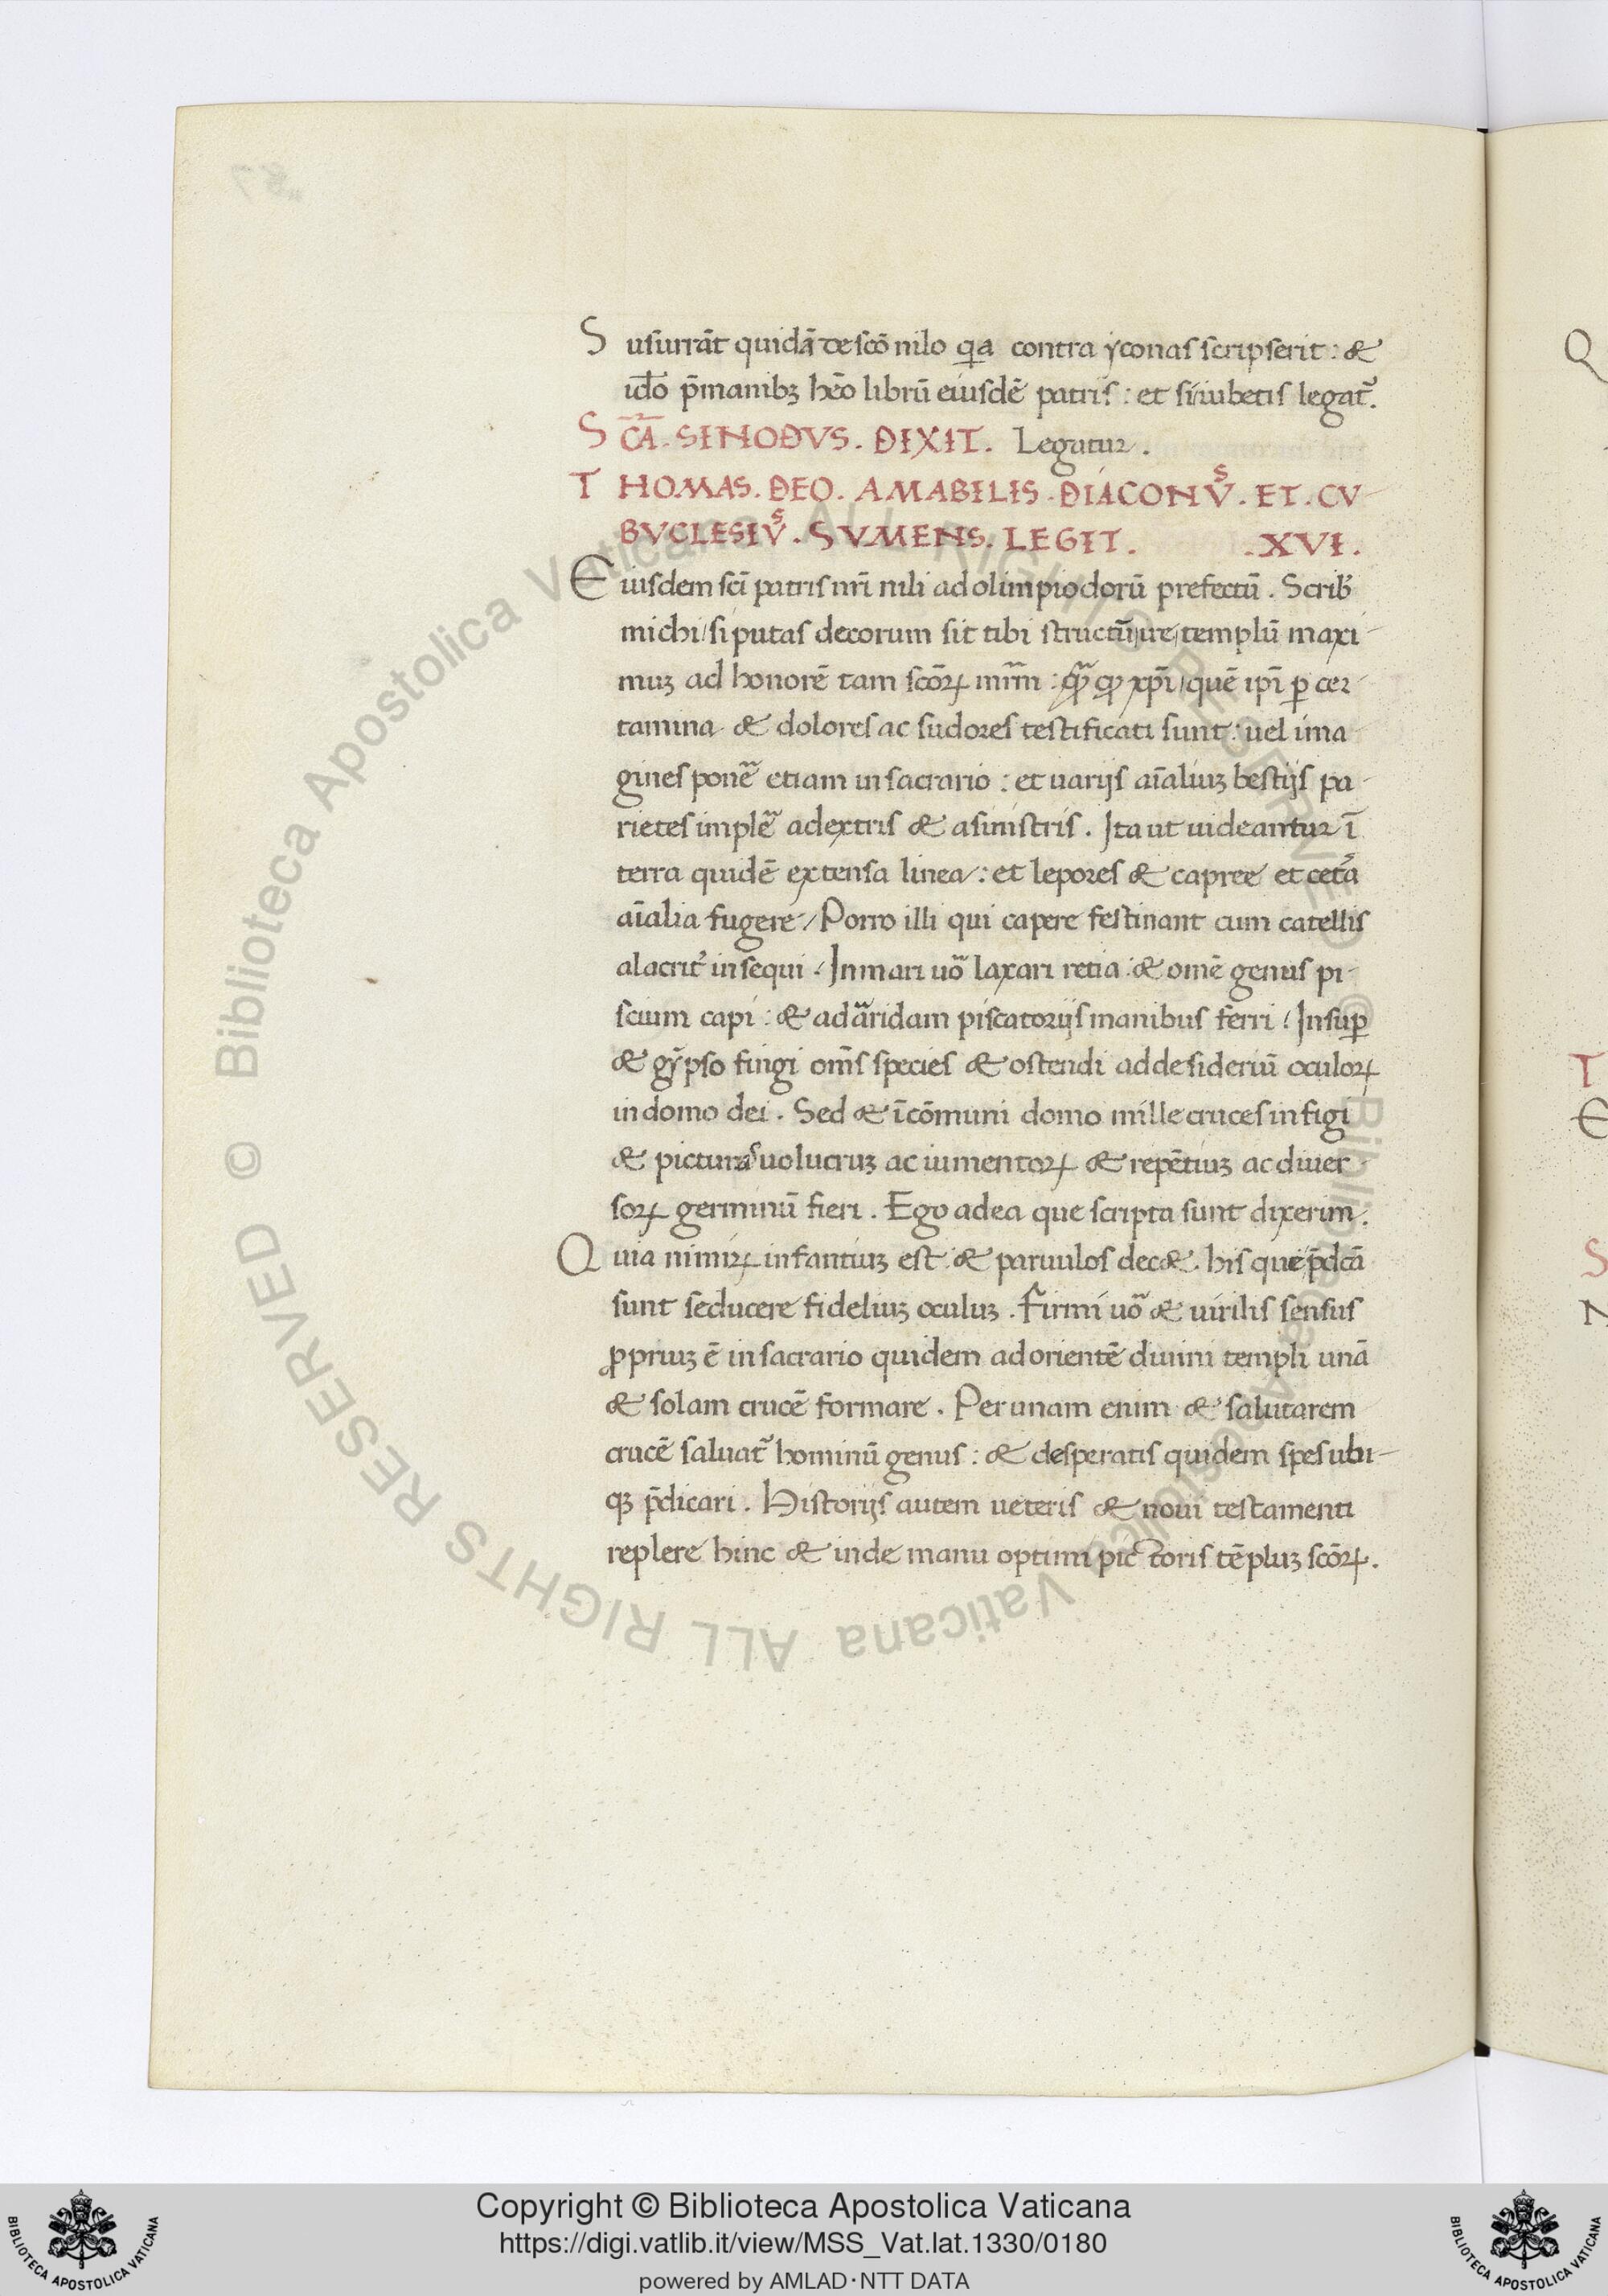 Susurrāt quidā de scō nilo qa contra yconas scripserit : &
id̄o p̄manibꝫ hēo librū eiusdē patris : et si iubetis legat᷑.
SC̄A. SINODVS. DIXIT. Legatur.
THOMAS. DEO. AMABILIS. DIACONVˢ. ET. CV
BVCLESIVˢ. SVMENS. LEGIT. .XVI.
Eiusdem sci̅ patris nr̄i nili ad olimpiodorū prefectū. Scrib᷑
michi / si putas decorum sit tibi structū ire templū maxi-
muꝫ ad honorē tam scōꝝ mr̄m : xp̄i / quē ip̄i ꝑ cer-
tamina & dolores ac sudores testificati sunt : uel ima
gines pone᷑ etiam in sacrario : et uarijs aīaliuꝫ bestijs pa-
rietes imple᷑ adextris & asinistris. Ita ut uideantur ī
terra quidē extensa linea : et lepores & capree et cet᷑a
aīalia fugere / Porro illi qui capere festinant cum catellis
alacrit᷑ insequi / In mari uo᷑ laxari retia : & omē genus pi-
scium capi : & ad aridam piscatorijs manibus ferri / Insuꝑ
& gypso fingi om̄s species & ostendi ad desideriū oculoꝝ
in domo dei. Sed & ī cōmuni domo mille cruces infigi
& picturas uolucruꝫ ac iumentoꝝ & repētiuꝫ ac diuer-
soꝝ germinū fieri. Ego ad ea que scripta sunt dixerim.
Quia nimiꝝ infantiuꝫ est & paruulos dec&. his que p̄dc̄a
sunt seducere fideliuꝫ oculuꝫ. Firmi uo᷑ & uirilis sensus
ꝓpriuꝫ ē in sacrario quidem ad orientē diuini templi unā
& solam crucē formare. Per unam enim & salutarem
crucē saluat᷑ hominū genus : & desperatis quidem spes ubi-
qꝫ p̄dicari. Historijs autem ueteris & noui testamenti
replere hinc & inde manu optimi pictoris tēpluꝫ scōꝝ.
© Biblioteca Apostolica Vaticana ALL RIGHTS RESERVED © Biblioteca Apostolica Vaticana ALL RIGHTS RESERVED
Q
T
E
S
N
Copyright © Biblioteca Apostolica Vaticana
https://digi.vatlib.it/view/MSS_Vat.lat.1330/0180
powered by AMLAD·NTT DATA
BIBLIOTECA APOSTOLICA VATICANA
BIBLIOTECA APOSTOLICA VATICANA